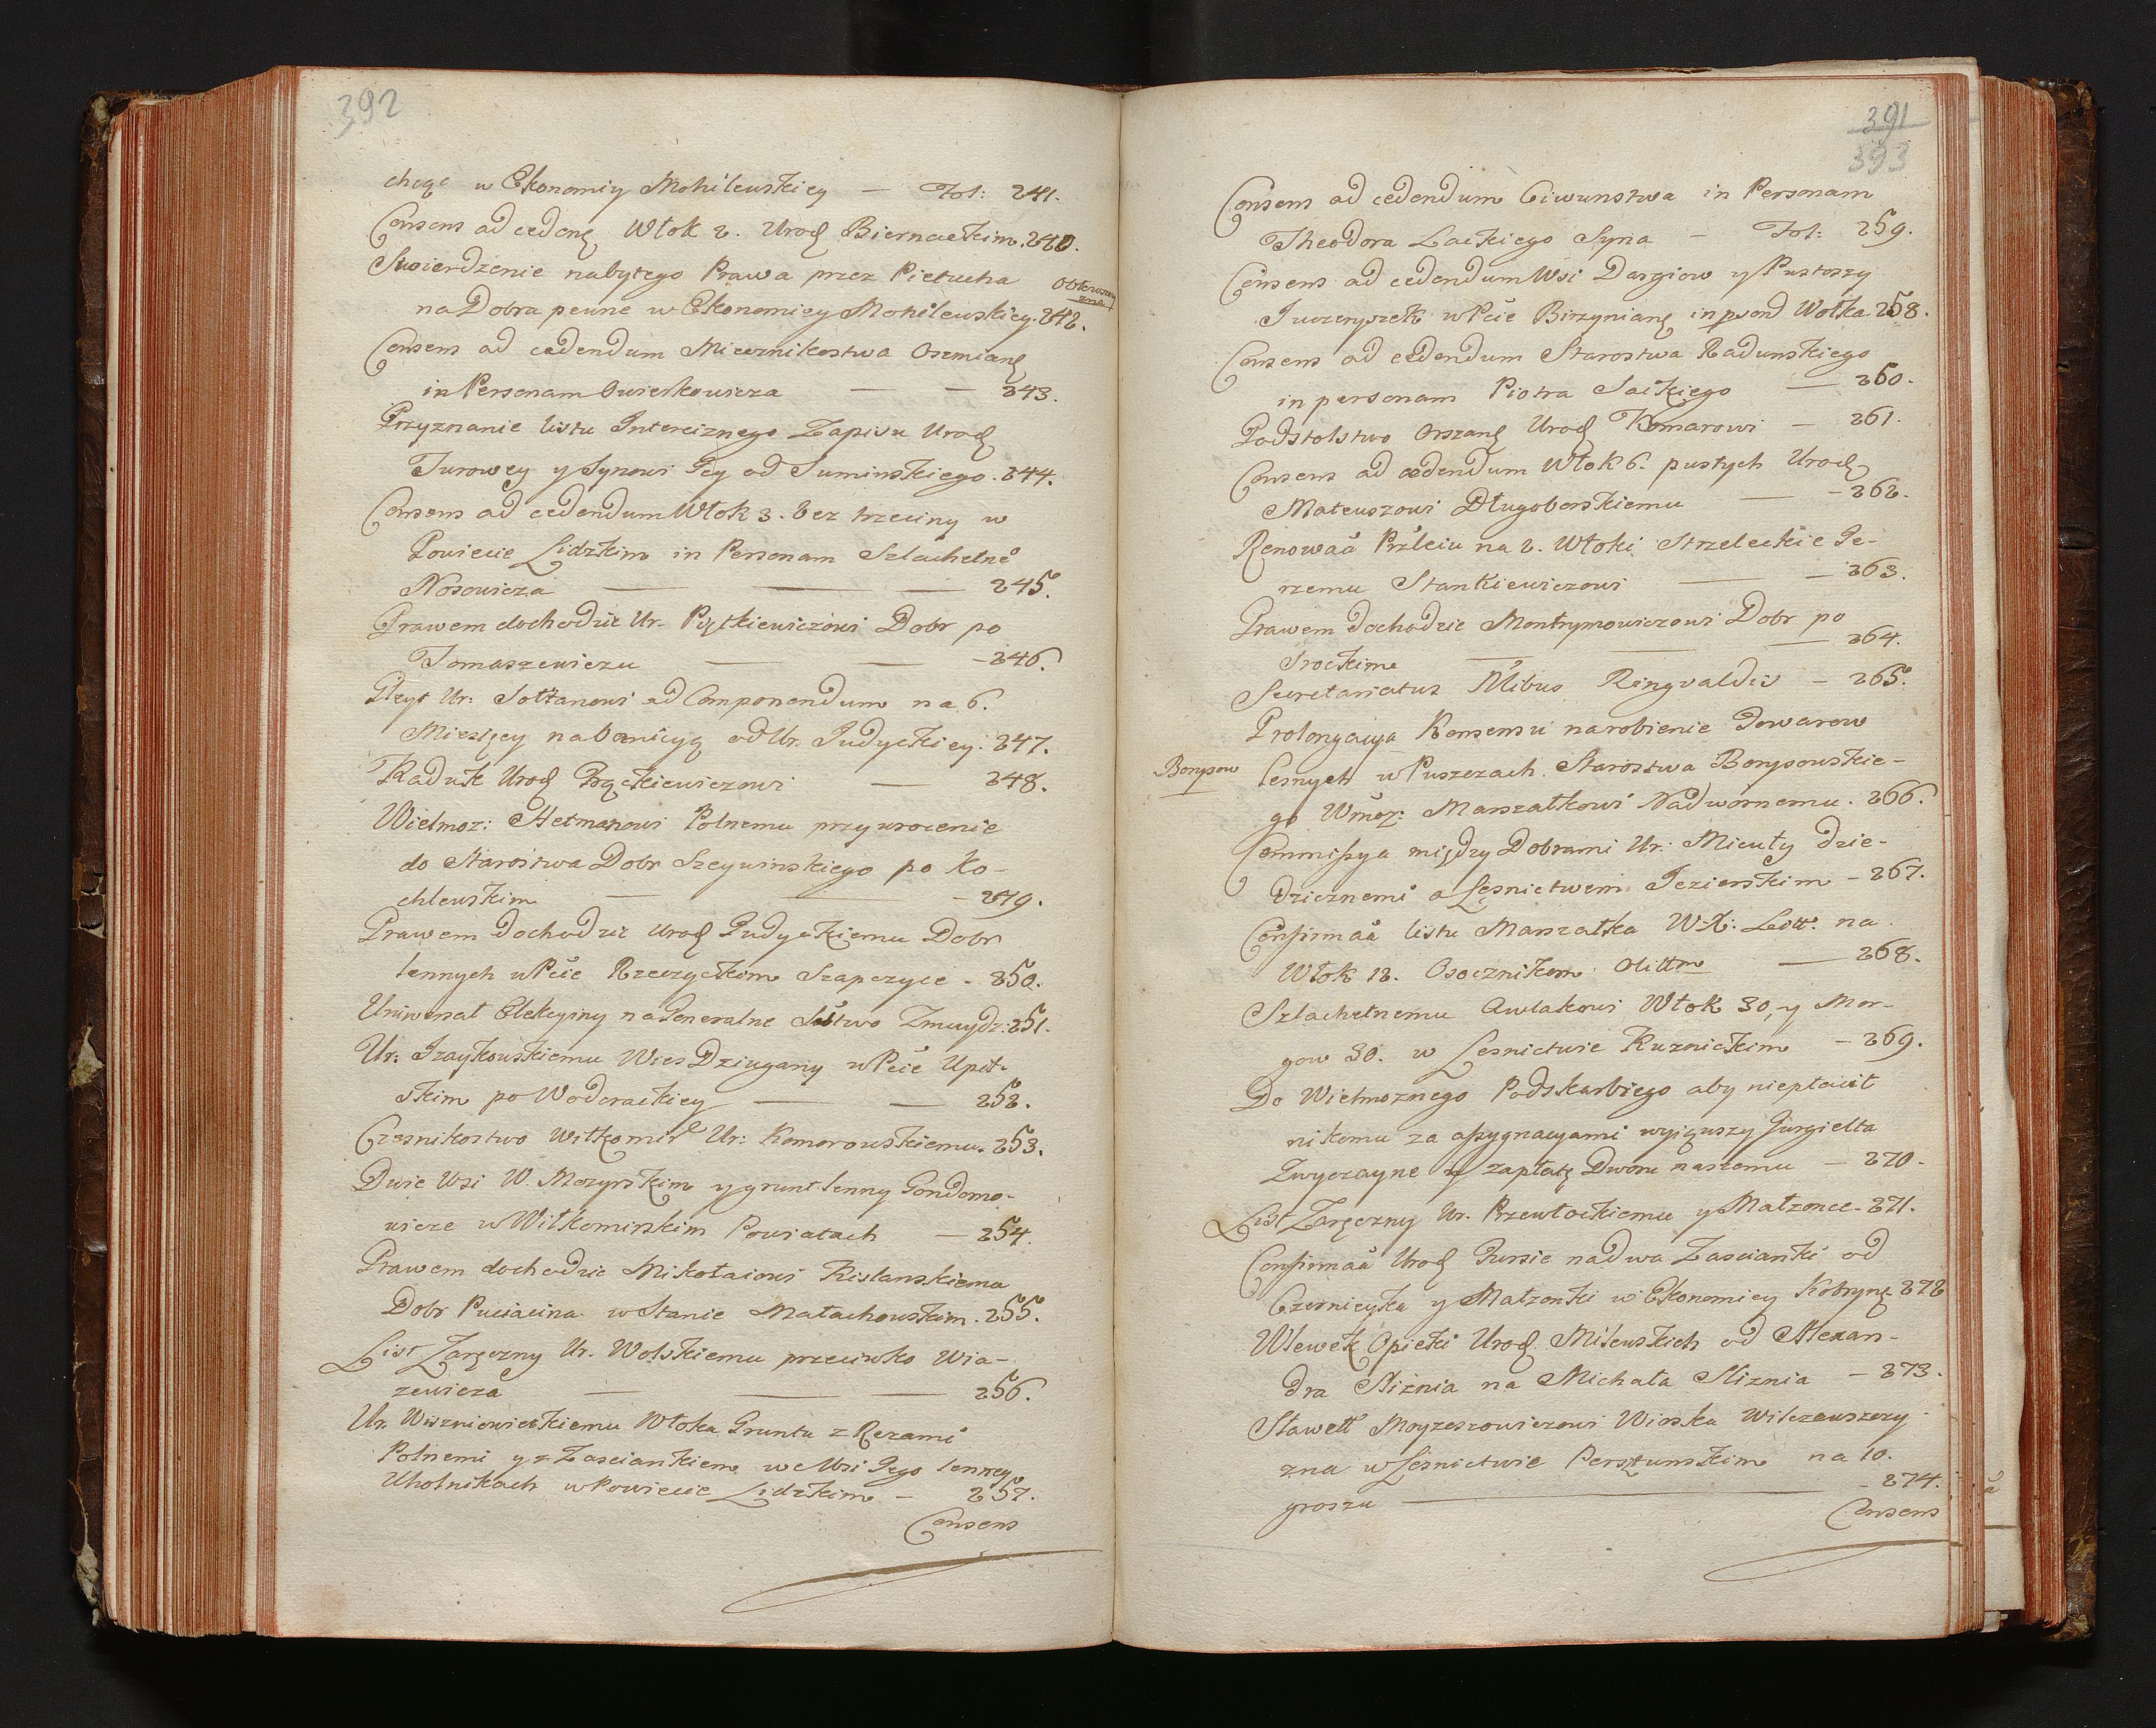 392
chcąc w Ekonomiy Mohilewskiey — Fol: 241.
Consens ad cedend Włok 2. Urod Biernackim. 240.
Stwierdzenie nabytego Prawa przez Pietucha
na Dobra pewne w Ekonomiey Mohilewskiey. 242.
Consens ad cedendum Miecznikostwa Oszmiand
in Personam Owieskowicza — — 243.
Przyznanie listu Interciznego Zapisu Urod
Turowey y Synowi Jey od Suminskiego. 244.
Consens ad cedendum Włok 3. bez trzeciny w
Powiecie Lidzkim in Personam Szlachetne
Nosowicza — — — 245.
Prawem dochodzic Ur. Piątkiewiczowi Dobr po
Tomaszewiczu — — — 246.
Gleyt Ur: Sołtanowi ad Componendum na 6.
Miesięcy na banicyą od Ur. Judyckiey. 247.
Kaduk Urod Prąckiewiczowi — 248.
Wielmoz: Hetmanowi Polnemu przywrocenie
do Starostwa Dobr Szeywinskiego po Ko-
chlewskim — — — 249.
Prawem dochodzic Urod Judyckiemu Dobr
lennych w Pcie Rzeczyckim Szapczyce - 250.
Uniwersał Elekcyiny na Generalne Sstwo Zmuydz: 251.
Ur: Izaykowskiemu Wies Dziugany w Pcie Upit-
skim po Wodorackiey — — 252.
Czesnikostwo Wiłkomir Ur: Komorowskiemu. 253.
Dwie Wsi W. Mozyrskim y grunt lenny Gondomo-
wicze w Wiłkomirskim Powiatach — 254.
Prawem dochodzic Mikołaiowi Kislanskiemu
Dobr Puciacina w Stanie Małachowskim. 255.
List Zaręczny Ur. Wolskiemu przeciwko Wia-
zewicza — — — 256.
Ur. Wiszniowieckiemu Włoka Gruntu z Rezami
Polnemi y z Zasciankiem we Wsi Jego lenney
Uholnikach w Powiecie Lidzkim — 257.
Consens
391
393
Consens ad cedendum Ciwunstwa in Personam
Theodora Lackiego Syna — Fol: 259.
Consens ad cedendum Wsi Dargiow y Pustoszy
Juczenyszek w Pcie Birzyniand in psond Wołka 258.
Consens ad cedendum Starostwa Radunskiego
in personam Piotra Sackiego — 260.
Podstolstwo Orszand Urod Komarowi — 261.
Consens ad cedendum Włok 6. pustych Urod
Mateuszowi Długoborskiemu — - 262.
Renowaa Przlciu na 2. Włoki Strzeleckie Je-
rzemu Stankiewiczowi — - 263.
Prawem dochodzic Montrymowiczowi Dobr po
Trockim — — — 264.
Secretariatus Nlibus Ringvaldis — 265.
Prolongacya Konsensu na robienie Towarow
Borysow
lesnych w Puszczach Starostwa Borysowskie-
go Wmoz: Marszałkowi Nadwornemu. 266.
Commissya między Dobrami Ur: Micuty dzie-
dzicznemi a Lesnictwem Jezierskim - 267.
Confirmaa listu Marszałka W.X: Litt: na
Włok 12. Osocznikom Olittm — 268.
Szlachetnemu Awlakowi Włok 30, y Mor-
gow 30. w Lesnictwie Kuznickim - 269.
Do Wielmoznego Podskarbiego aby niepłacił
nikomu za assygnacyami wyiąwszy Jurgielta
Zwyczayne y zapłatę Dworu naszemu — 270.
List Zaręczny Ur. Przewłockiemu y Małzonce. 271.
Confirmaa Urod Pursie na dwa Zascianki od
Czernicyka y Małzonki w Ekonomiey Kobrynd 272
Wlewek Opieki Urod Milewskich od Alexan-
dra Sliznia na Michała Sliznia - 273.
Sławett Moyzeszowiczowi Wioska Wilczewszczy-
zna w Lesnictwie Persztunskim na 10.
groszu — — 274.
Consens